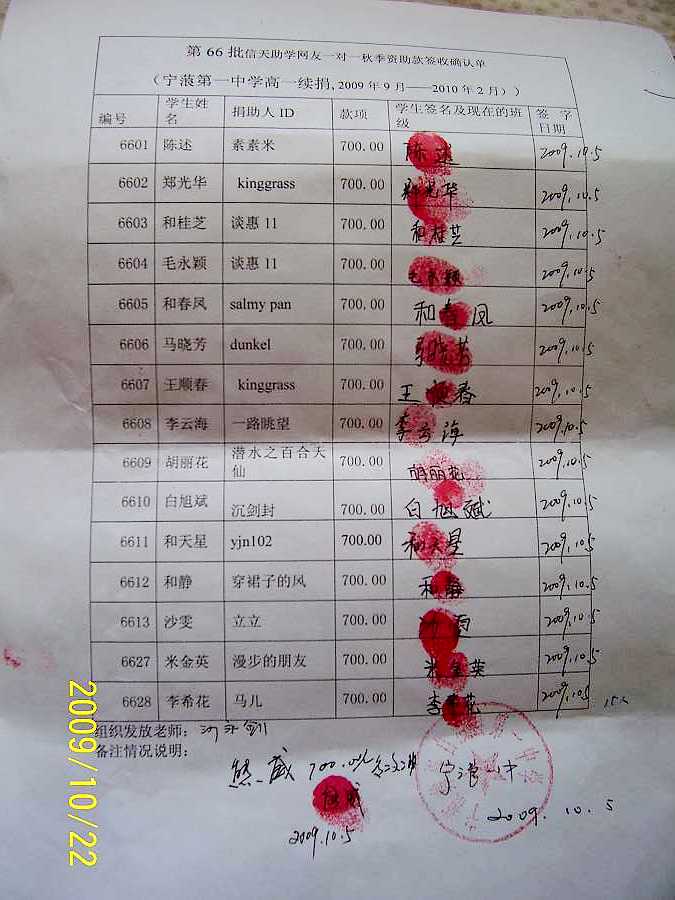 第 66 批信天助学网友一对一秋季资助款签收确认单
（宁蒗第一中学高一续捐, 2009 年 9 月——2010 年 2 月））
编号 学生姓名 捐助人 ID 款项 学生签名及现在的班级 签字日期
6601 陈述 素素米 700.00 陈述 2009.10.5
6602 郑光华 kinggrass 700.00 郑光华 2009.10.5
6603 和桂芝 谈惠 11 700.00 和桂芝 2009.10.5
6604 毛永颖 谈惠 11 700.00 毛永颖 2009.10.5
6605 和春凤 salmy pan 700.00 和春凤 2009.10.5
6606 马晓芳 dunkel 700.00 马晓芳 2009.10.5
6607 王顺春 kinggrass 700.00 王顺春 2009.10.5
6608 李云海 一路眺望 700.00 李云海 2009.10.5
6609 胡丽花 潜水之百合天仙 700.00 胡丽花 2009.10.5
6610 白旭斌 沉剑封 700.00 白旭斌 2009.10.5
6611 和天星 yjn102 700.00 和天星 2009.10.5
6612 和静 穿裙子的风 700.00 和静 2009.10.5
6613 沙雯 立立 700.00 沙雯 2009.10.5
6627 米金英 漫步的朋友 700.00 米金英 2009.10.5
6628 李希花 马儿 700.00 李希花 2009.10.5
组织发放老师：
备注情况说明：
熊威 700.00
宁蒗一中
熊威
2009.10.5
2009.10.5
2009/10/22